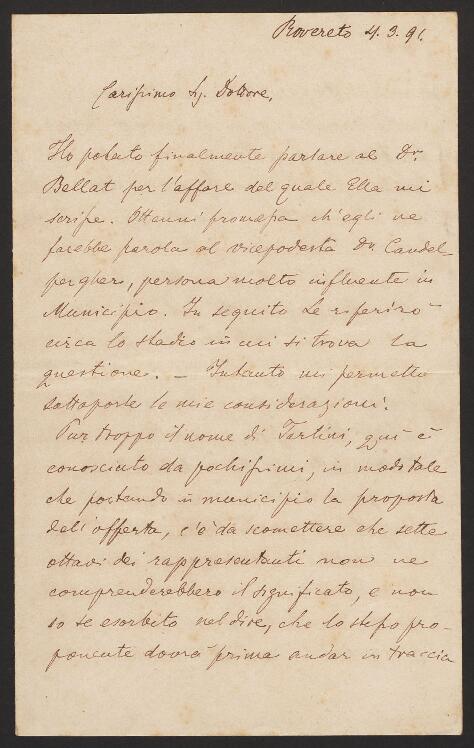 Rovereto 4.3.91.
Carissimo Sg. Dottore,
Ho potuto finalmente parlare al Dr.
Bellat per l'affare del quale Ella mi
scrisse. Ottenni promessa ch'egli ne
farebbe parola al vicepodestà Dr. Candel
pergher, persona molto influente in
Municipio. In seguito Le riferirò
circa lo stadio in cui si trova la
questione. – Intanto mi permetto
sottoporle le mie considerazioni.
Pur troppo il nome di Tartini, quì è
conosciuto da pochissimi, in modo tale
che portando in municipio la proposta
dell'offerta, c'è da scomettere che sette
ottavi dei rappresentanti non ne
comprenderebbero il significato, e non
so se esorbito nel dire, che lo stesso pro-
ponente dovrà prima andar in traccia